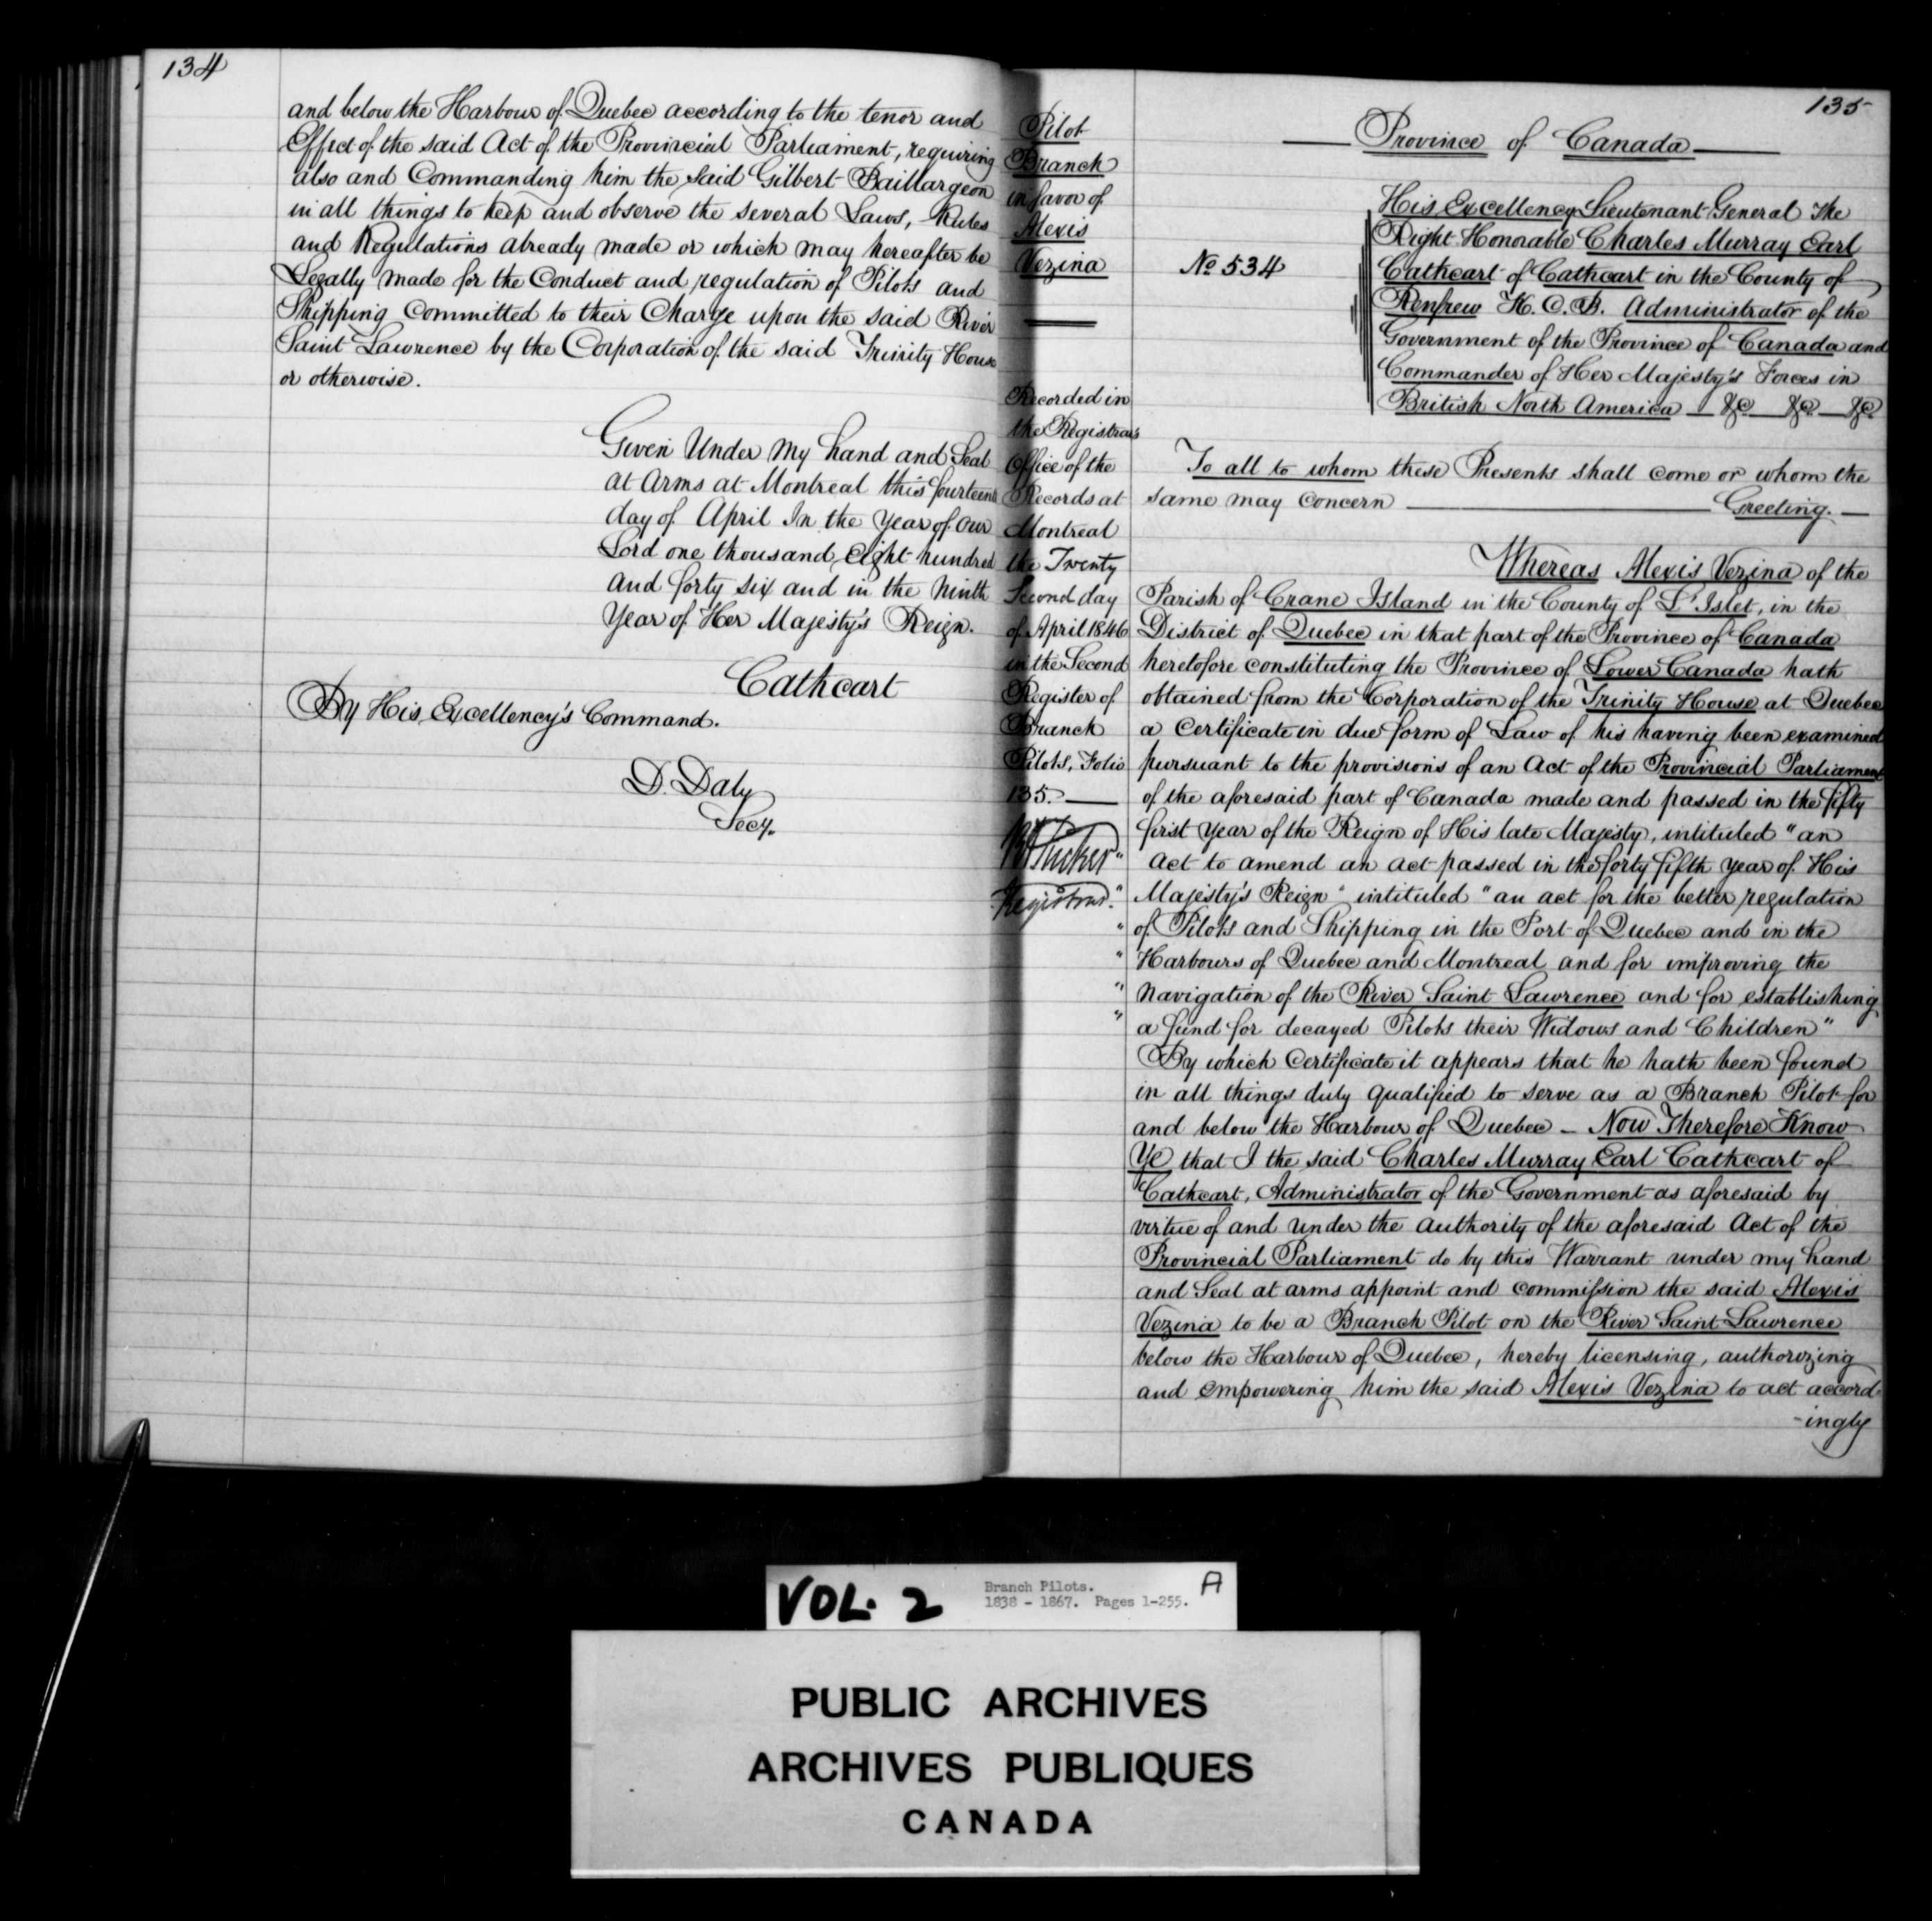 134
and below the Harbour of Quebec according to the tenor and
Effect of the said Act of the Provincial Parliament, requiring
also and Commanding him the said Gilbert Baillargeon
in all things to keep and observe the several Laws, Rules
and Regulations already made or which may hereafter be
Legally made for the Conduct and regulation of Pilots and
Shipping Committed to their Charge upon the said River
Saint Lawrence by the Corporation of the said Trinity House
or otherwise.
Given Under My hand and Seal
at Arms at Montreal this fourteenth
day of April In the Year of Our
Lord one thousand eight hundred
and forty six and in the Ninth
Year of Her Majesty's Reign.
Cathcart
By His Excellency's Command.
D. Daly
Secy.
135
Pilot
Branch
in favor of
Alexis
Vezina
Recorded in
the Registrar's
Office of the
Records at
Montreal
the Twenty
Second day
of April 1846
in the Second
Register of
Branch
Pilots, Folio
135.
Tucker
Registrar.
Province of Canada
No 534
His Excellency Lieutenant General The
Right Honorable Charles Murray Earl
Cathcart of Cathcart in the County of
Renfrew K.C.B. Administrator of the
Government of the Province of Canada and
Commander of Her Majesty's Forces in
British North America — &c — &c — &c
To all to whom these Presents shall come or whom the
same may concern — Greeting. —
Whereas Alexis Vezina of the
Parish of Crane Island in the County of L'Islet, in the
District of Quebec in that part of the Province of Canada
heretofore constituting the Province of Lower Canada hath
obtained from the Corporation of the Trinity House at Quebec
a Certificate in due form of Law of his having been examined
pursuant to the provisions of an Act of the Provincial Parliament
of the aforesaid part of Canada made and passed in the fifty
first Year of the Reign of His late Majesty, intituled "an
" Act to amend an act passed in the forty fifth year of His
" Majesty's Reign " intituled " an act for the better regulation
" of Pilots and Shipping in the Port of Quebec and in the
" Harbours of Quebec and Montreal and for improving the
" Navigation of the River Saint Lawrence and for establishing
" a fund for decayed Pilots their Widows and Children"
By which Certificate it appears that he hath been found
in all things duly qualified to serve as a Branch Pilot for
and below the Harbour of Quebec — Now Therefore Know
Ye that I the said Charles Murray Earl Cathcart of
Cathcart, Administrator of the Government as aforesaid by
virtue of and under the authority of the aforesaid Act of the
Provincial Parliament do by this Warrant under my hand
and Seal at arms appoint and commission the said Alexis
Vezina to be a Branch Pilot on the River Saint Lawrence
below the Harbour of Quebec, hereby licensing, authorizing
and empowering him the said Alexis Vezina to act accord-
-ingly
VOL. 2
Branch Pilots.
1838 - 1867. Pages 1-255.
A
PUBLIC ARCHIVES
ARCHIVES PUBLIQUES
CANADA